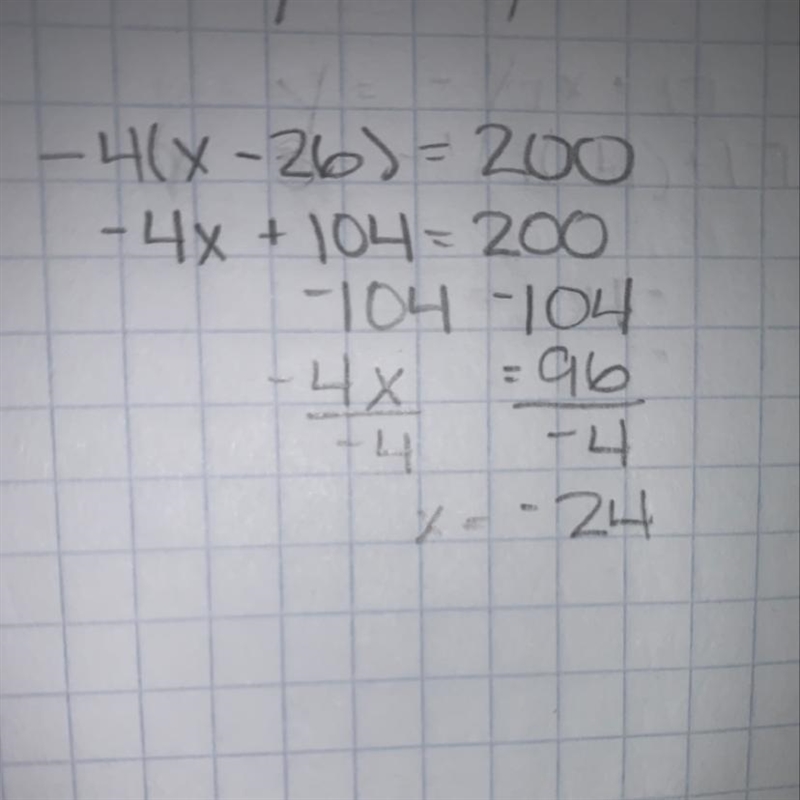 -4(x - 26) = 200
-4x + 104 = 200
-104 -104
-4x = 96
-4 -4
x = -24